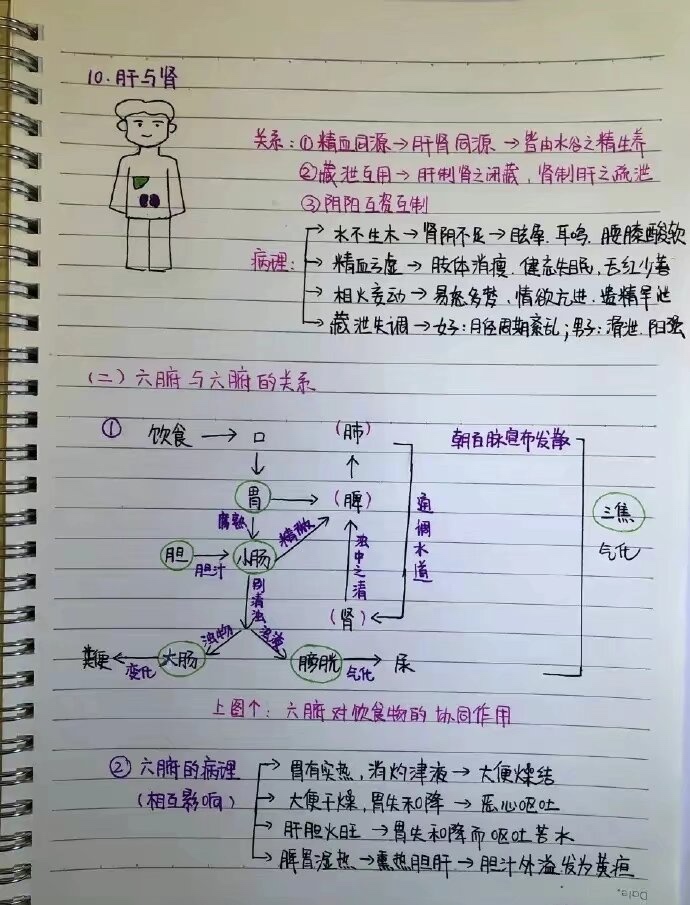 10. 肝与肾
关系：①精血同源→肝肾同源→皆由水谷之精生养
②藏泄互用→肝制肾之闭藏，肾制肝之疏泄
③阴阳互资互制
病理：
水不生木→肾阴不足→眩晕、耳鸣、腰膝酸软
精血亏虚→肢体消瘦、健忘失眠、舌红少苔
相火妄动→易怒多梦、情欲亢进、遗精早泄
藏泄失调→女子：月经周期紊乱；男子：滑泄、阳强
（二）六腑与六腑的关系
①
饮食→口
（肺）
朝百脉宣布发散
胃→（脾）
通调水道
三焦
气化
腐熟
精微
胆
胆汁
小肠
浊中之清
别清浊
（肾）
浊物
浊液
粪便
变化
大肠
膀胱
气化
尿
上图个：六腑对饮食物的协同作用
②六腑的病理
（相互影响）
胃有实热，消灼津液→大便燥结
大便干燥，胃失和降→恶心呕吐
肝胆火旺→胃失和降而呕吐苦水
脾胃湿热→熏热胆肝→胆汁外溢发为黄疸
Date.